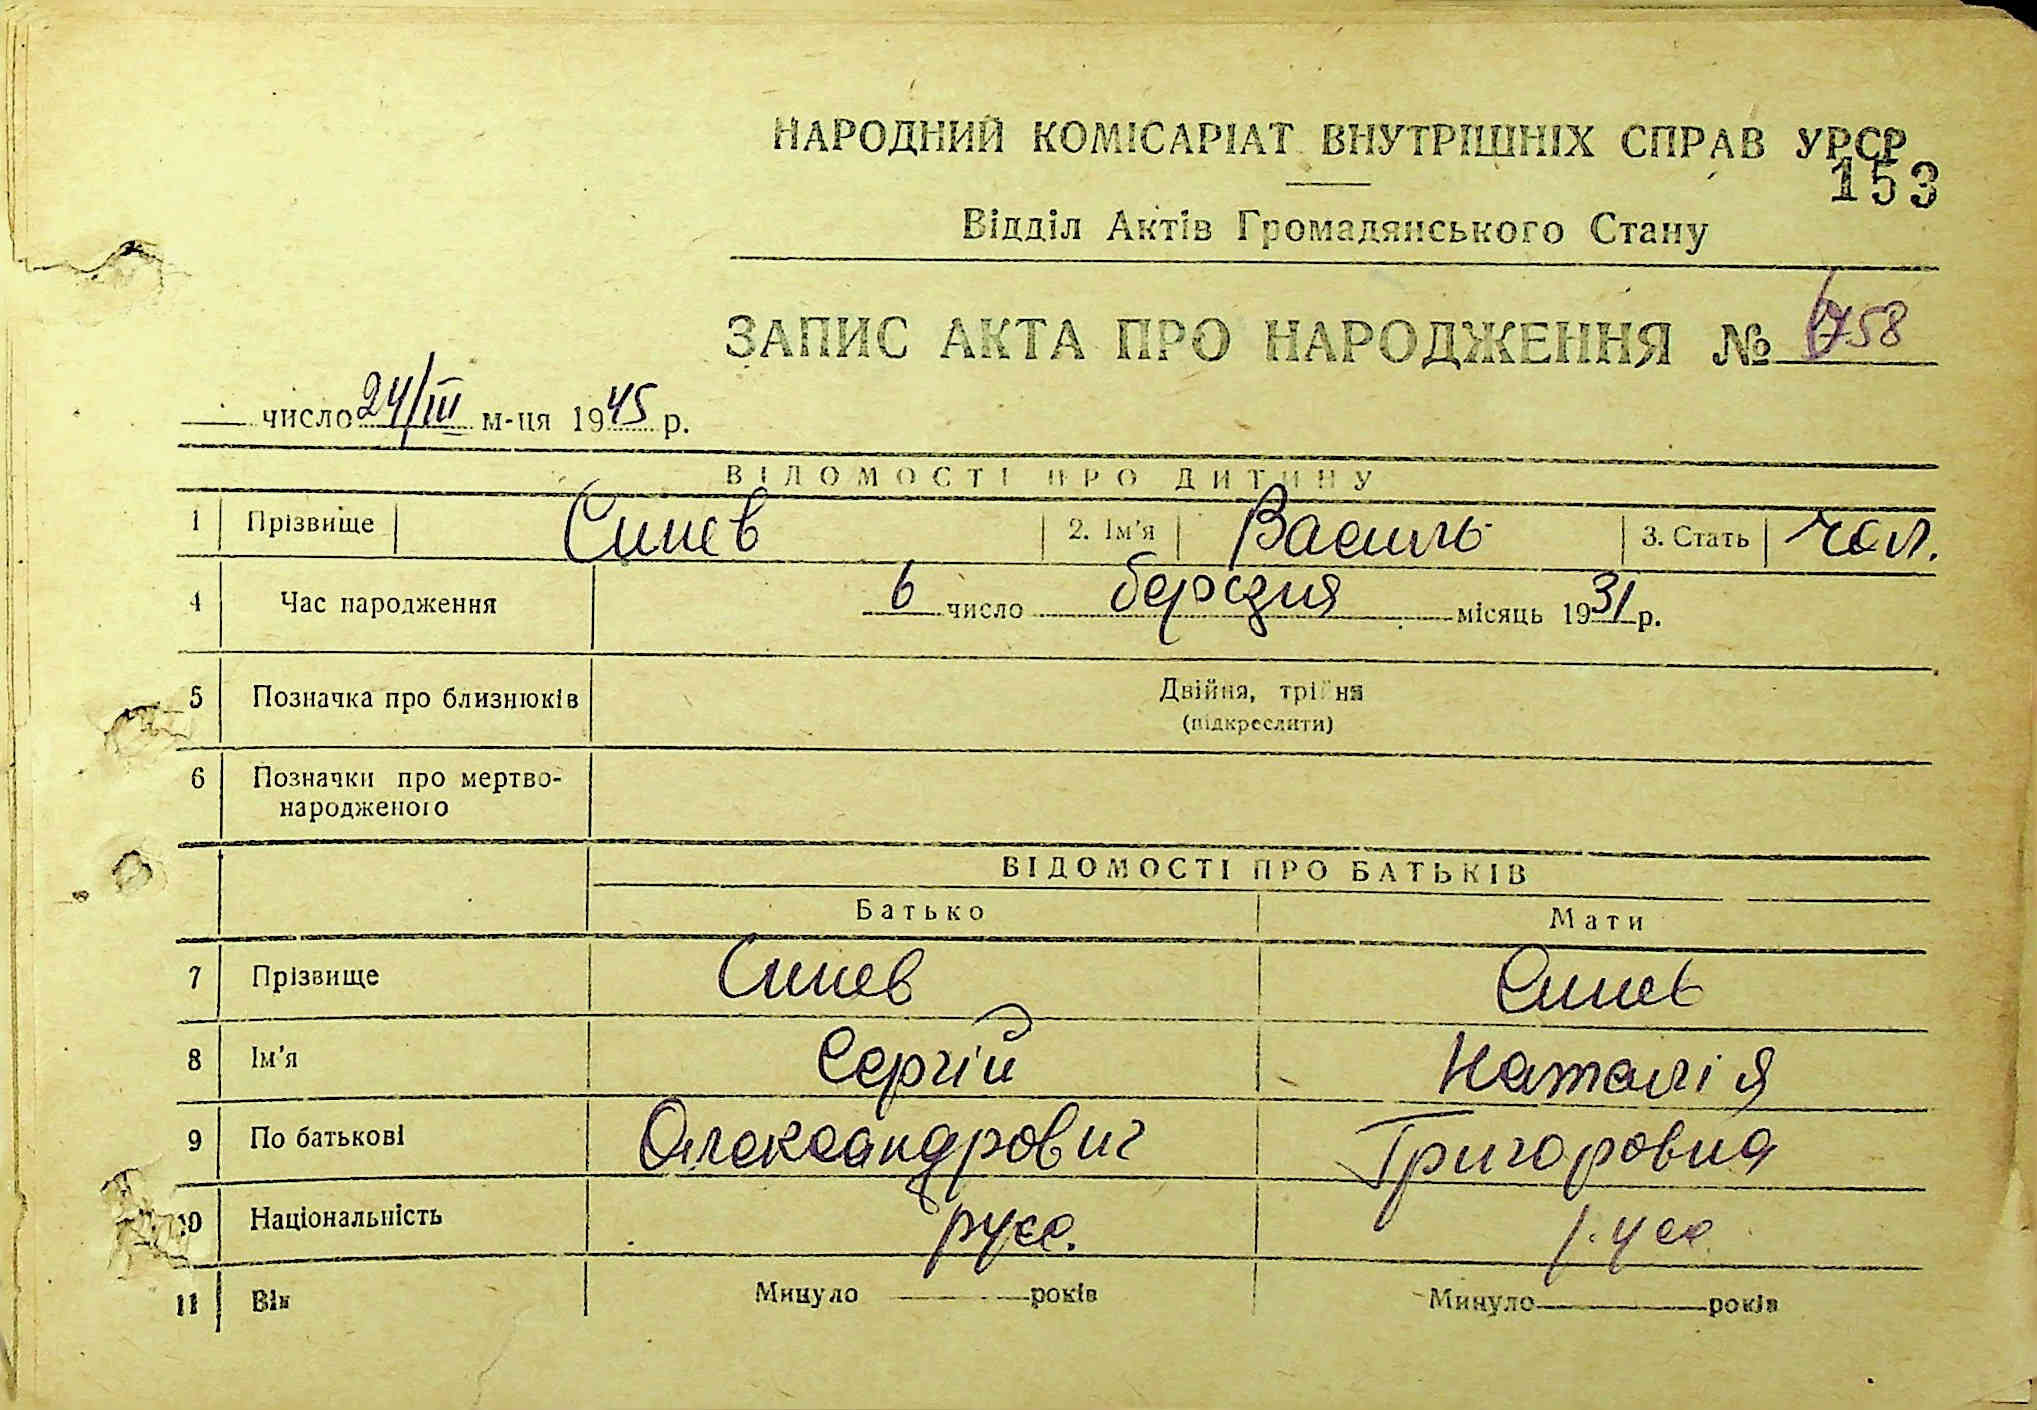 НАРОДНИЙ КОМІСАРІАТ ВНУТРІШНІХ СПРАВ УРСР
153
Відділ Актів Громадянського Стану
ЗАПИС АКТА ПРО НАРОДЖЕННЯ № 758
число 24/III м-ця 1945 р.
ВІДОМОСТІ ПРО ДИТИНУ
1 Прізвище Синєв 2. Ім'я Василь 3. Стать чол.
4 Час народження 6 число березня місяць 1931 р.
5 Позначка про близнюків Двійня, трійня
(підкреслити)
6 Позначки про мертво-
народженого
ВІДОМОСТІ ПРО БАТЬКІВ
Батько Мати
7 Прізвище Синєв Синєв
8 Ім'я Сергій Наталія
9 По батькові Олександрович Григоровна
10 Національність русс. русс
11 Вік Минуло років Минуло років